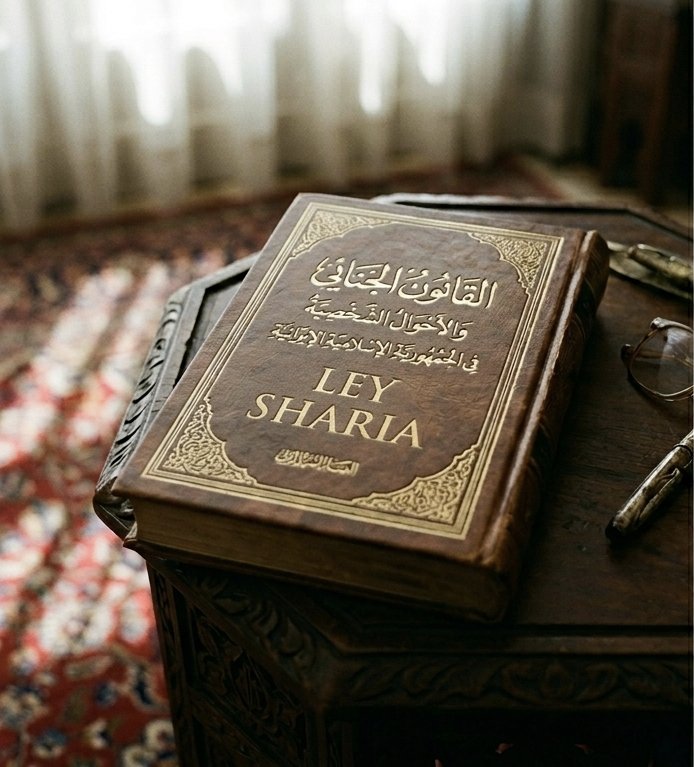 القَانُونُ الجَنَائِي
وَالأَحْوَالُ الشَّخْصِيَّة
فِي الجُمْهُورِيَّة الإِسْلَامِيَّة الإِيرَانِيَّة
LEY
SHARIA